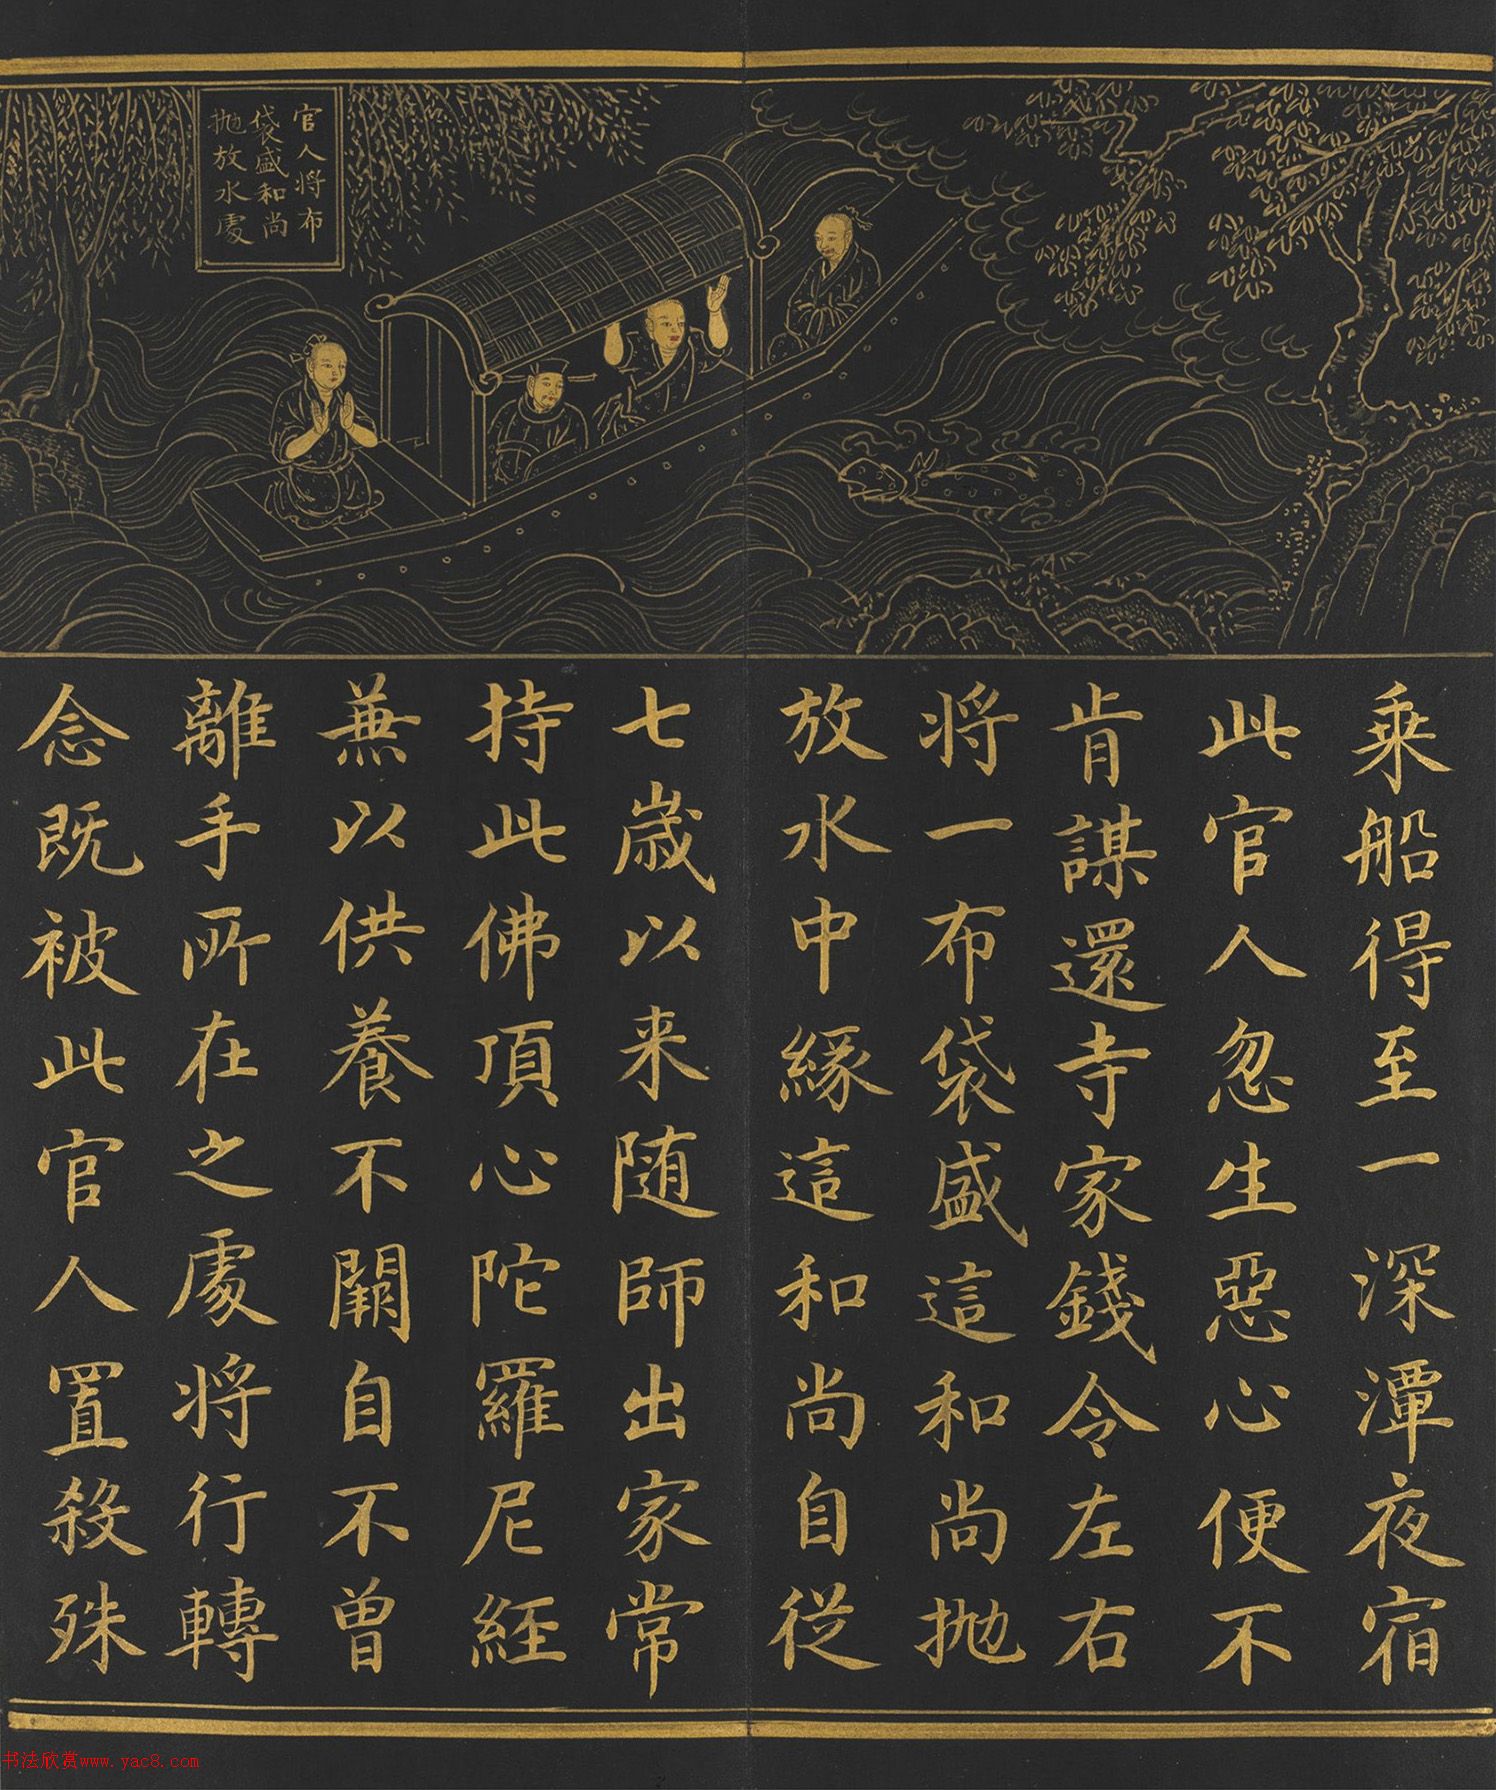 官人将布
袋盛和尚
抛放水處
乘船得至一深潭夜宿
此官人忽生惡心便不
肯謀還寺家錢令左右
将一布袋盛這和尚抛
放水中緣這和尚自従
七歳以来随師出家常
持此佛頂心陀羅尼経
兼以供養不闕自不曾
離手所在之處将行轉
念既被此官人置殺殊
书法欣赏www.yac8.com